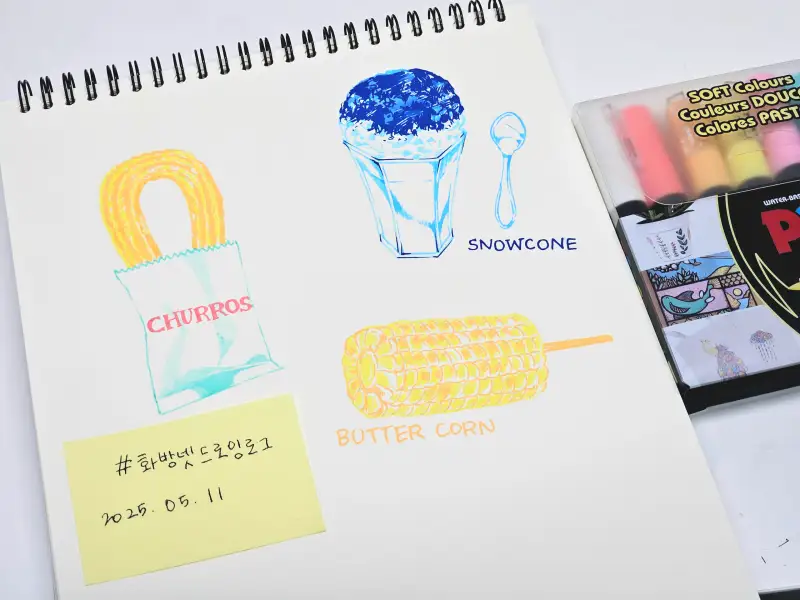 SNOWCONE
CHURROS
BUTTER CORN
#화방넷드로잉로그
2025. 05. 11
SOFT Colours
Couleurs DOUC
Colores PAST
WATER-BA